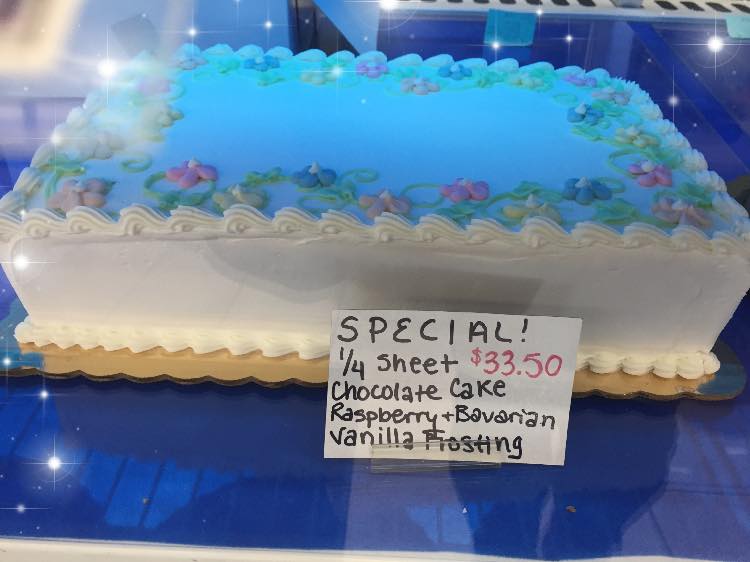 SPECIAL!
1/4 sheet $33.50
Chocolate Cake
Raspberry + Bavarian
Vanilla Frosting